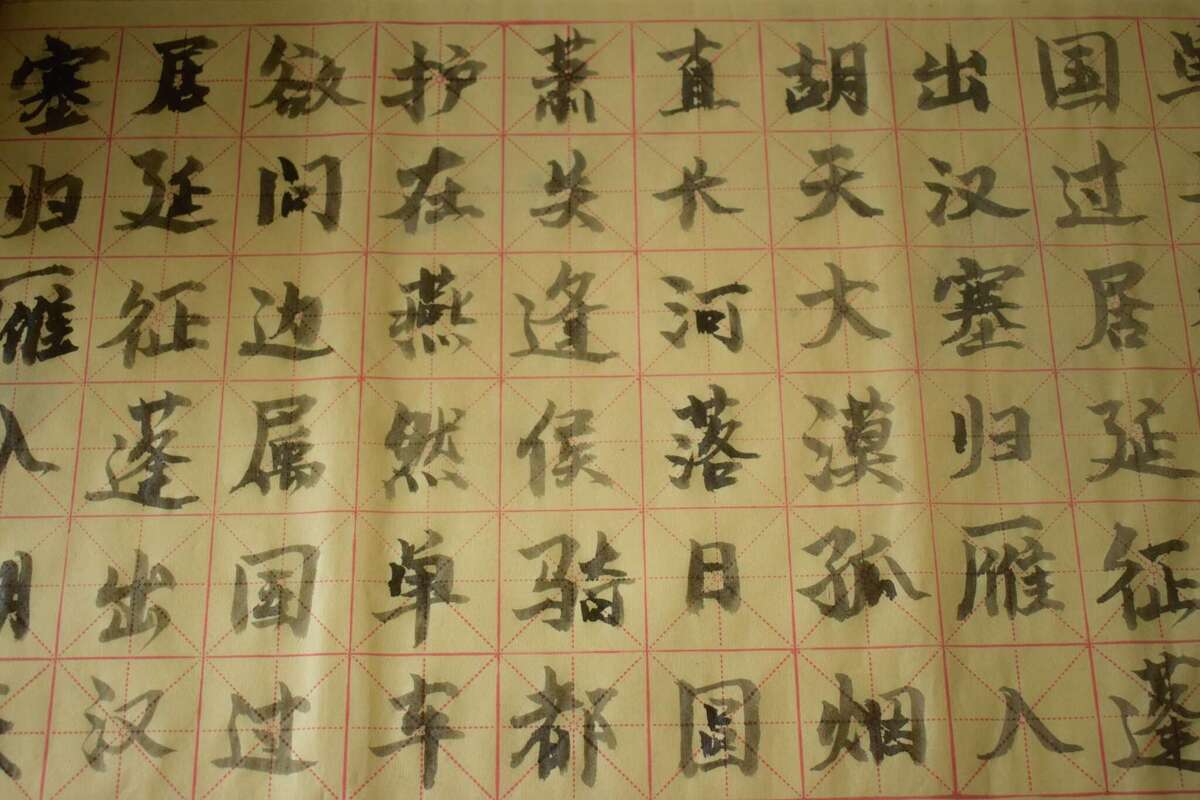 单
国过居延征蓬
出汉塞归雁入
胡天大漠孤烟
直长河落日圆
萧关逢侯骑都
护在燕然单车
欲问边属国过
居延征蓬出汉
塞归雁入胡天